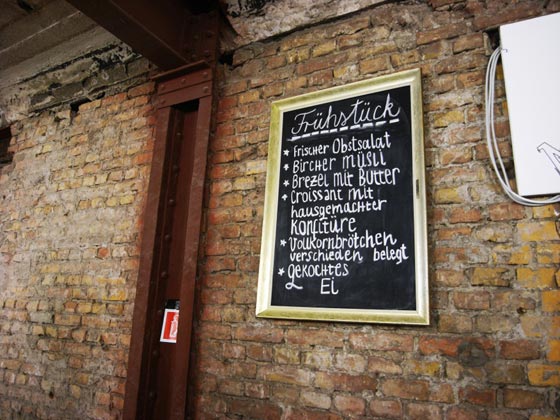 Frühstück
* Frischer Obstsalat
* Bircher müsli
* Brezel mit Butter
* Croissant mit
hausgemachter
Konfitüre
* Vollkornbrötchen
verschieden belegt
* gekochtes
Ei